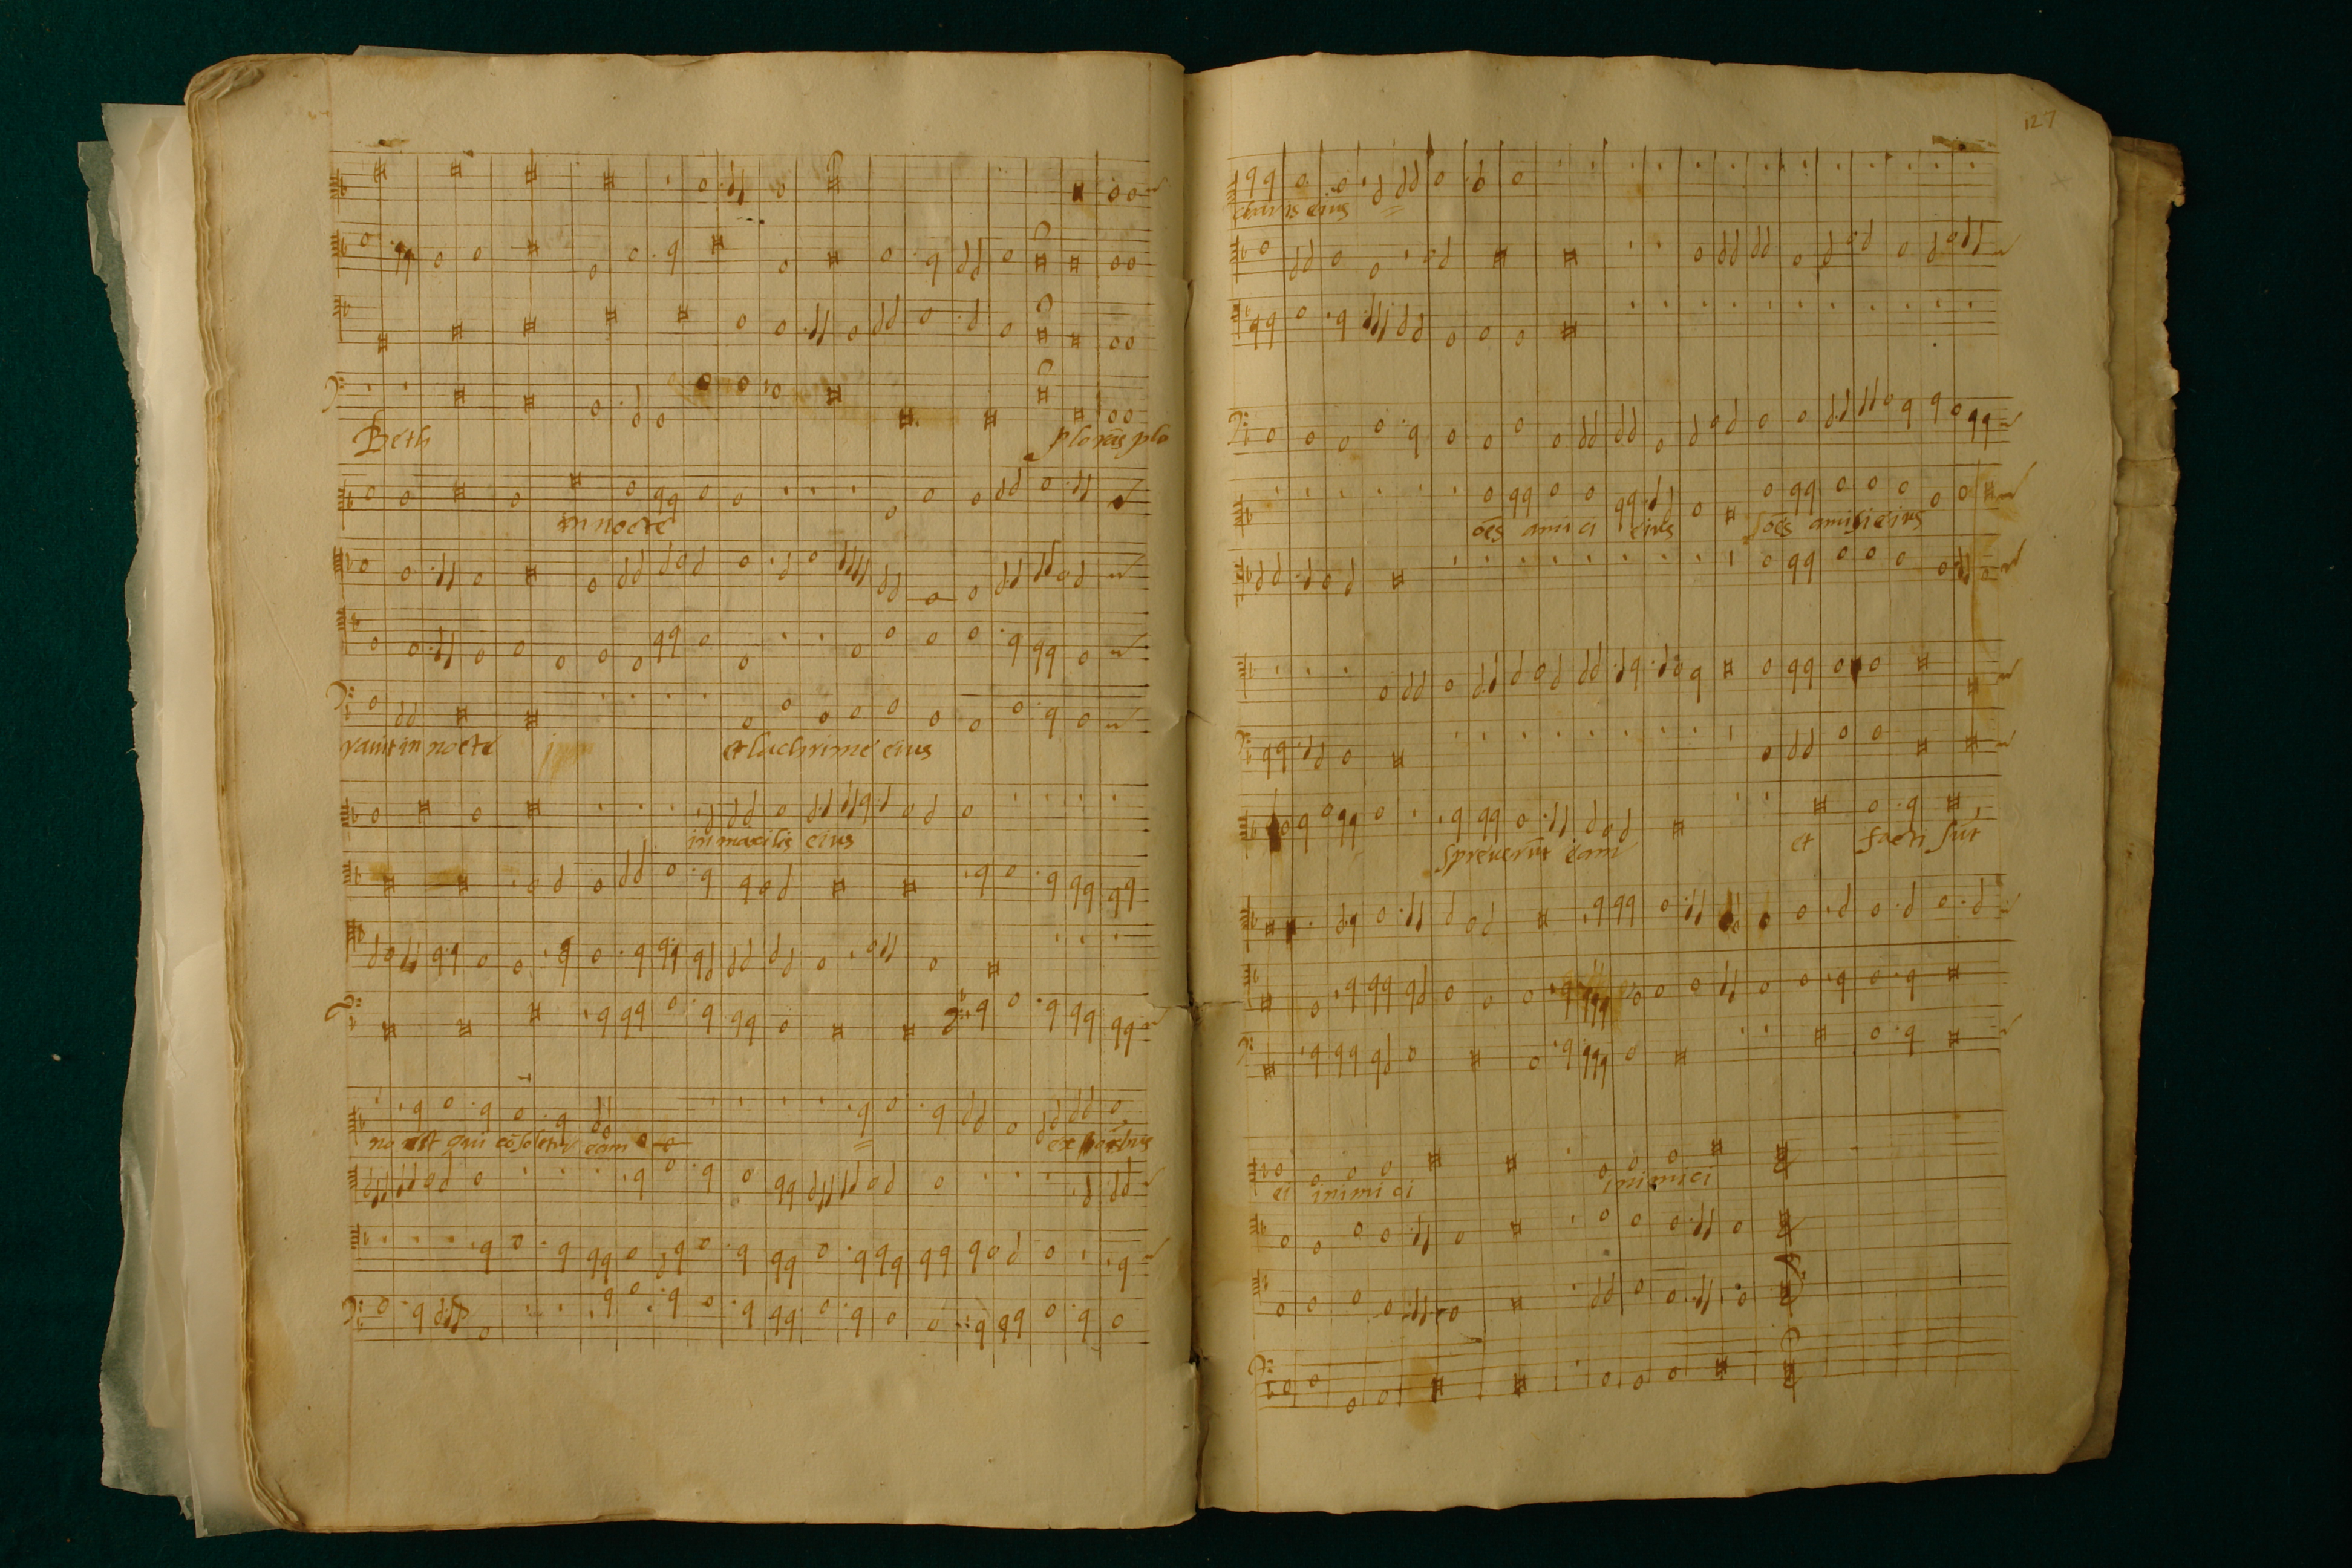 Beth plorās plo
in nocte
rauit in nocte et lachrime eius
in maxilis eius
nō est qui cōsoletur eam ex
127
charis eius
oēs amici eius oēs amici eius
spreuerūt eam et facti sūt
ei inimici inimici